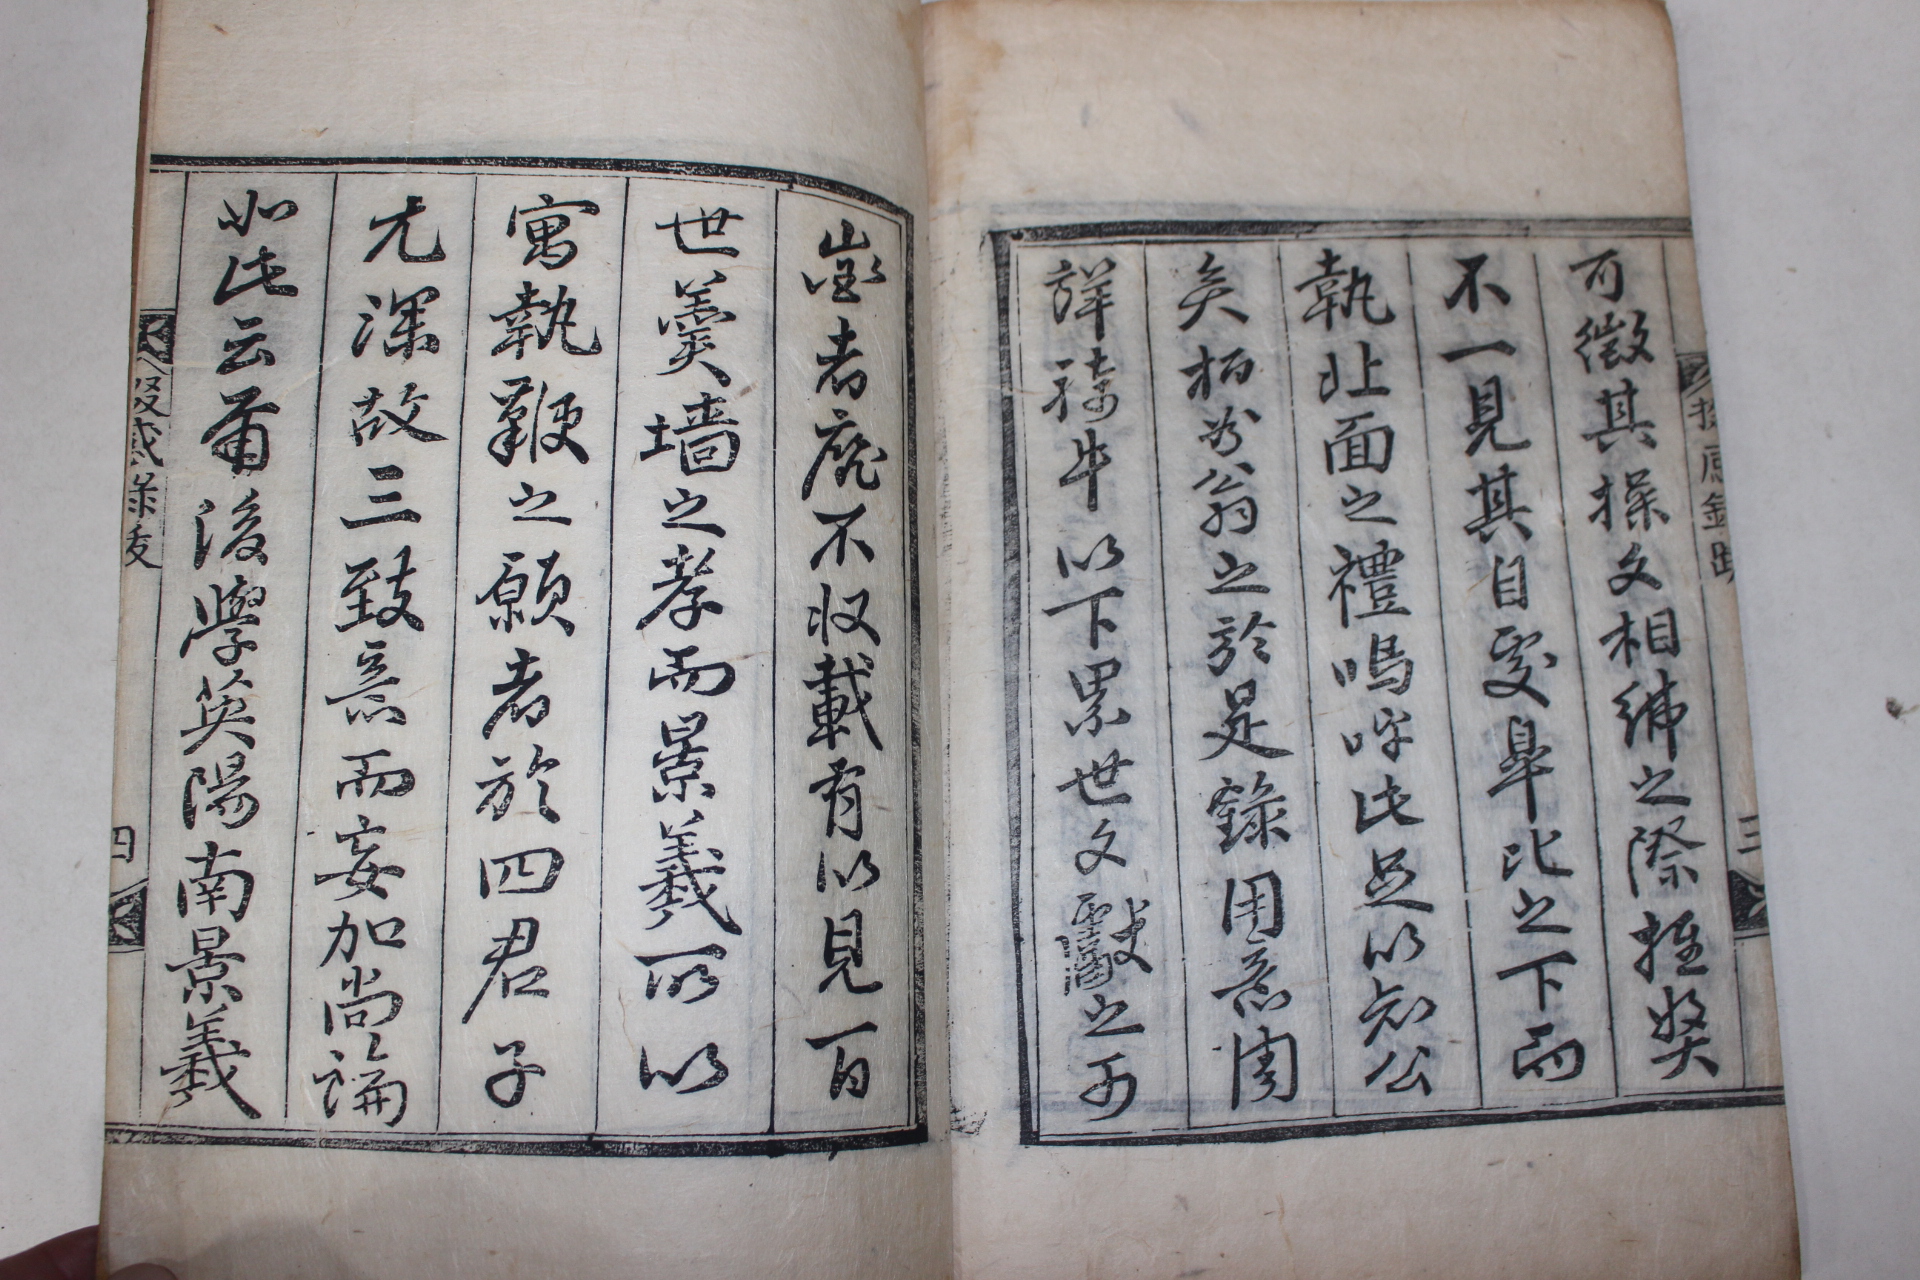 可徵其操文相緋之際推奬
不一見其自處卑比之下而
執北面之禮嗚呼此足以知公
矣柄裕翁之於是錄用意周
詳騎牛以下累世文獻之可
徵者靡不収載有以見百
世羹墻之孝而景義所以
寓執鞭之願者於四君子
尤深故三致意而妄加尚論
如此云爾後學英陽南景羲
掇感錄跋
三
掇感錄跋
四